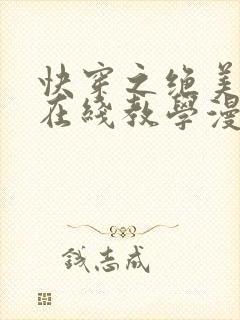 快穿之绝美
在线教學漫
钱志成